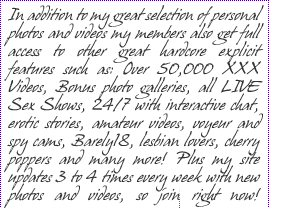 In addition to my great selection of personal
photos and videos my members also get full
access to other great hardcore explicit
features such as: Over 50,000 XXX
Videos, Bonus photo galleries, all LIVE
Sex Shows, 24/7 with interactive chat,
erotic stories, amateur videos, voyeur and
spy cams, Barely18, lesbian lovers, cherry
poppers and many more! Plus my site
updates 3 to 4 times every week with new
photos and videos, so join right now!